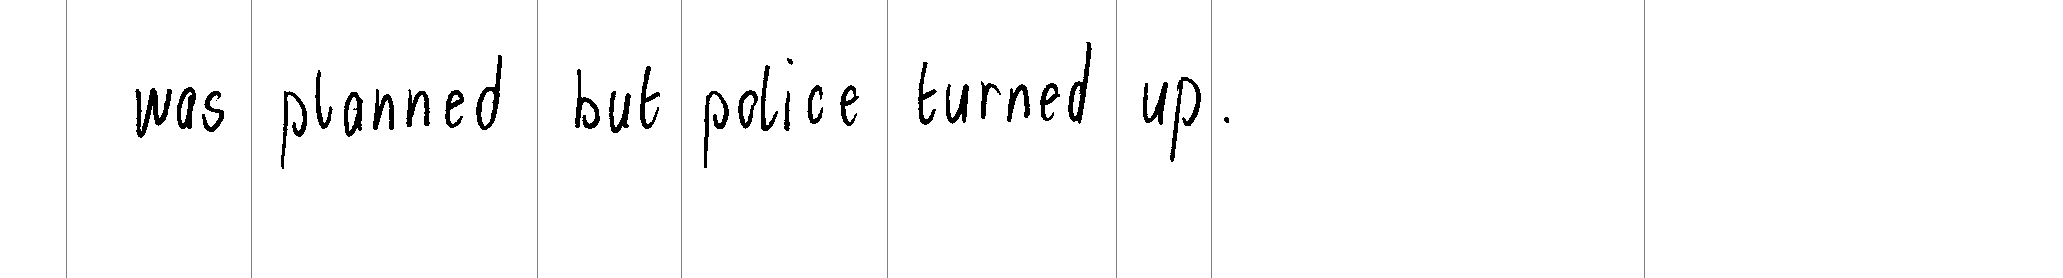 was planned but police turned up.